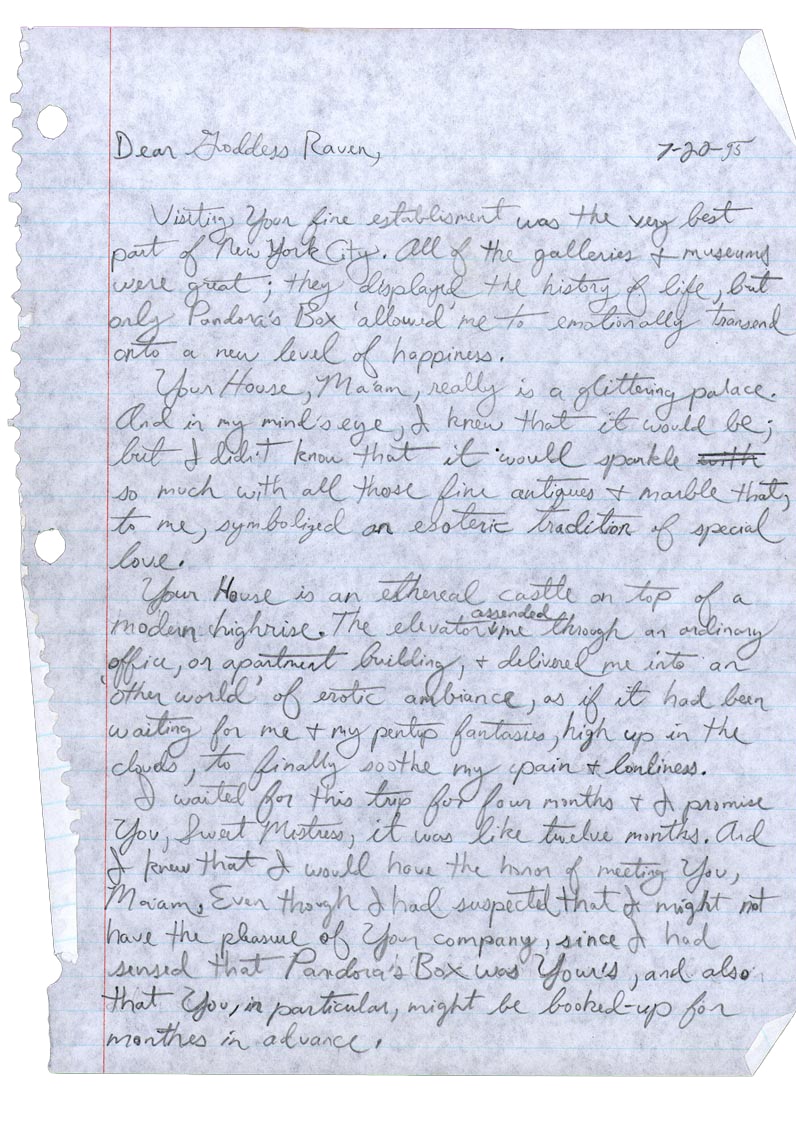 Dear Goddess Raven,
7-20-95
Visiting Your fine establisment was the very best
part of New York City. All of the galleries + museums
were great; they 'displayed' the history of life, but
only Pandora's Box 'allowed' me to emotionally transend
onto a new level of happiness.
Your House, Ma'am, really is a glittering palace.
And in my mind's eye, I knew that it would be;
but I didn't know that it would sparkle with
so much with all those fine antiques + marble that,
to me, symbolized an esoteric tradition of special
love.
Your House is an ethereal castle on top of a
modern highrise. The elevator assended me through an ordinary
office, or apartment building, + delivered me into an
'other world' of erotic ambiance, as if it had been
waiting for me + my pentup fantasies, high up in the
clouds, to finally soothe my pain + lonliness.
I waited for this trip for four months + I promise
You, Sweet Mistress, it was like twelve months. And
I knew that I would have the honor of meeting You,
Ma'am. Even though I had suspected that I might not
have the pleasure of Your company, since I had
sensed that Pandora's Box was Your's, and also
that You, in particular, might be booked-up for
monthes in advance.